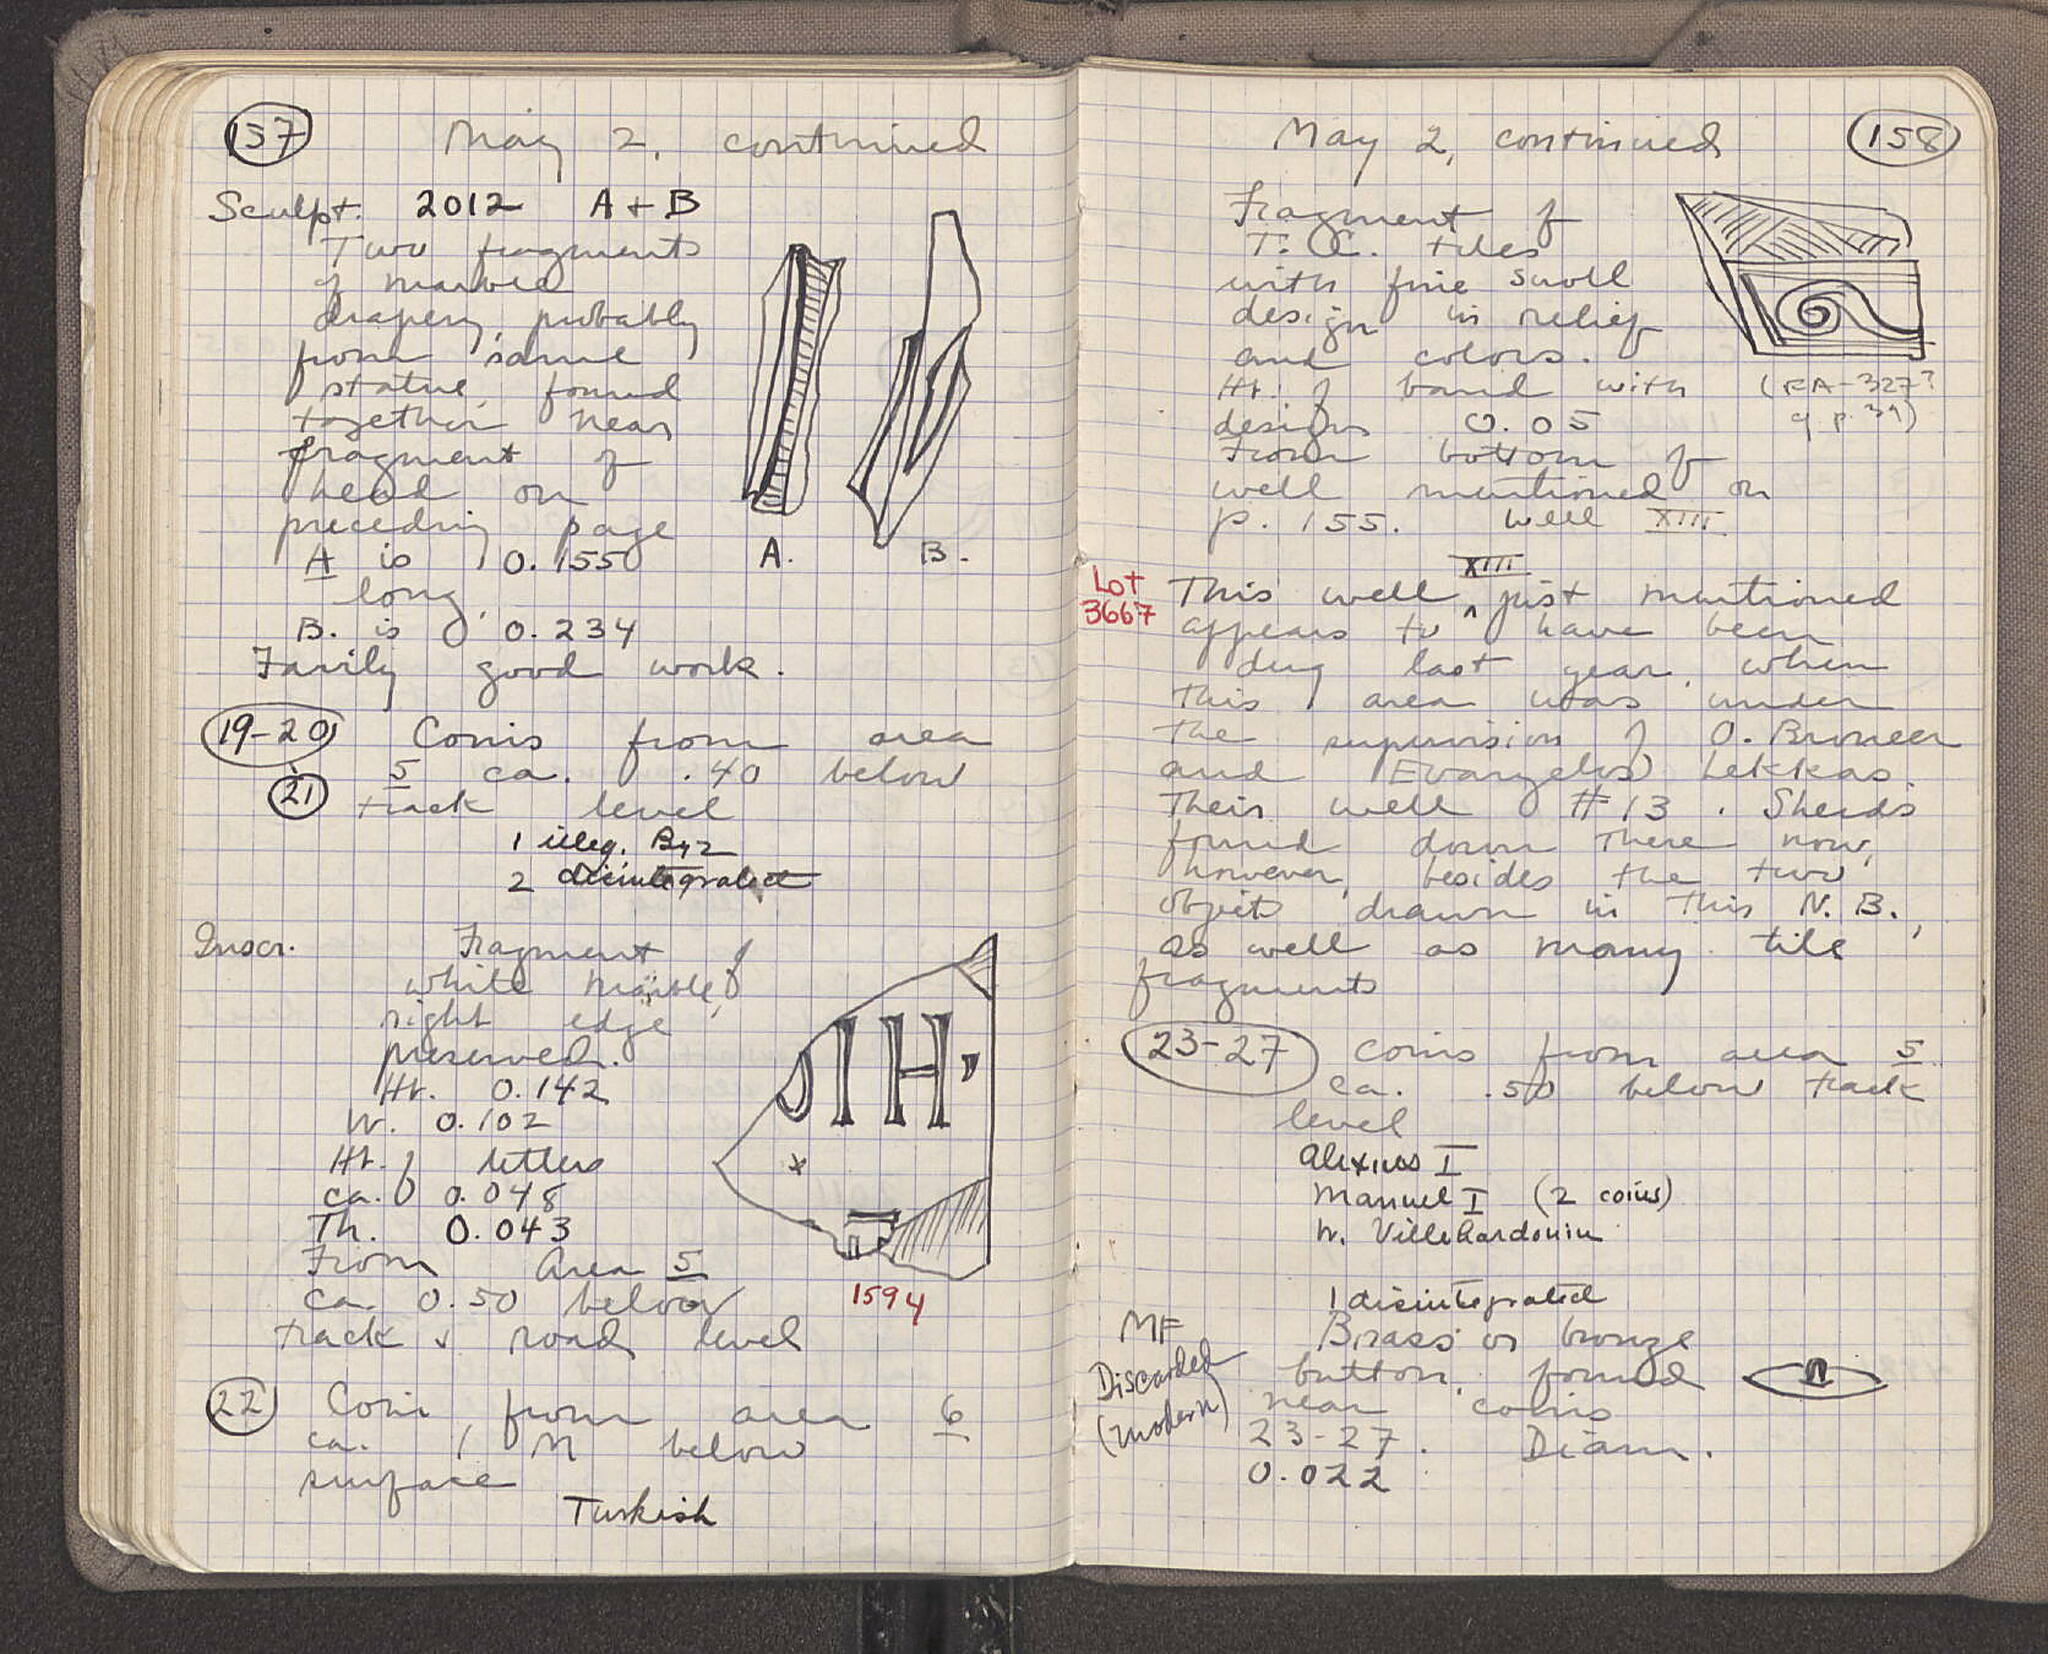 157
May 2, continued
Sculpt. 2012 A + B
Two fragments
of marble
drapery, probably
from same
statue, found
together near
fragment of
head on
preceding page
A is 0.155
long,
B. is 0.234
Fairly good work.
A.
B.
19-20 Coins from area
5 ca. .40 below
21 track level
1 illeg. Byz
2 disintegrated
Inscr. Fragment of
white marble,
right edge
preserved.
Ht. 0.142
W. 0.102
Ht. of letters
ca. 0.048
Th. 0.043
From Area 5
ca. 0.50 below
track & road level
IH
1594
22 Coin, from area 6
ca. 1 M below
surface
Turkish
May 2, continued
158
Fragment of
T.C. tiles
with fine scroll
design in relief
and colors.
Ht. of band with
design 0.05
(FA-327?
cf p. 39)
From bottom of
well mentioned on
p. 155. Well XIII
Lot
3667
XIII
This well ^ just mentioned
appears to have been
dug last year, when
this area was under
the supervision of O. Broneer
and Evangelos Lekkas.
Their well #13. Sherds
found down there now,
however, besides the two
objects drawn in this N.B.,
as well as many tile
fragments
23-27 Coins from area 5
ca. .50 below track
level
Alexius I
Manuel I (2 coins)
W. Villehardouin
1 disintegrated
MF Brass or bronze
Discarded
(modern)
button, found
near coins
23-27. Diam.
0.022